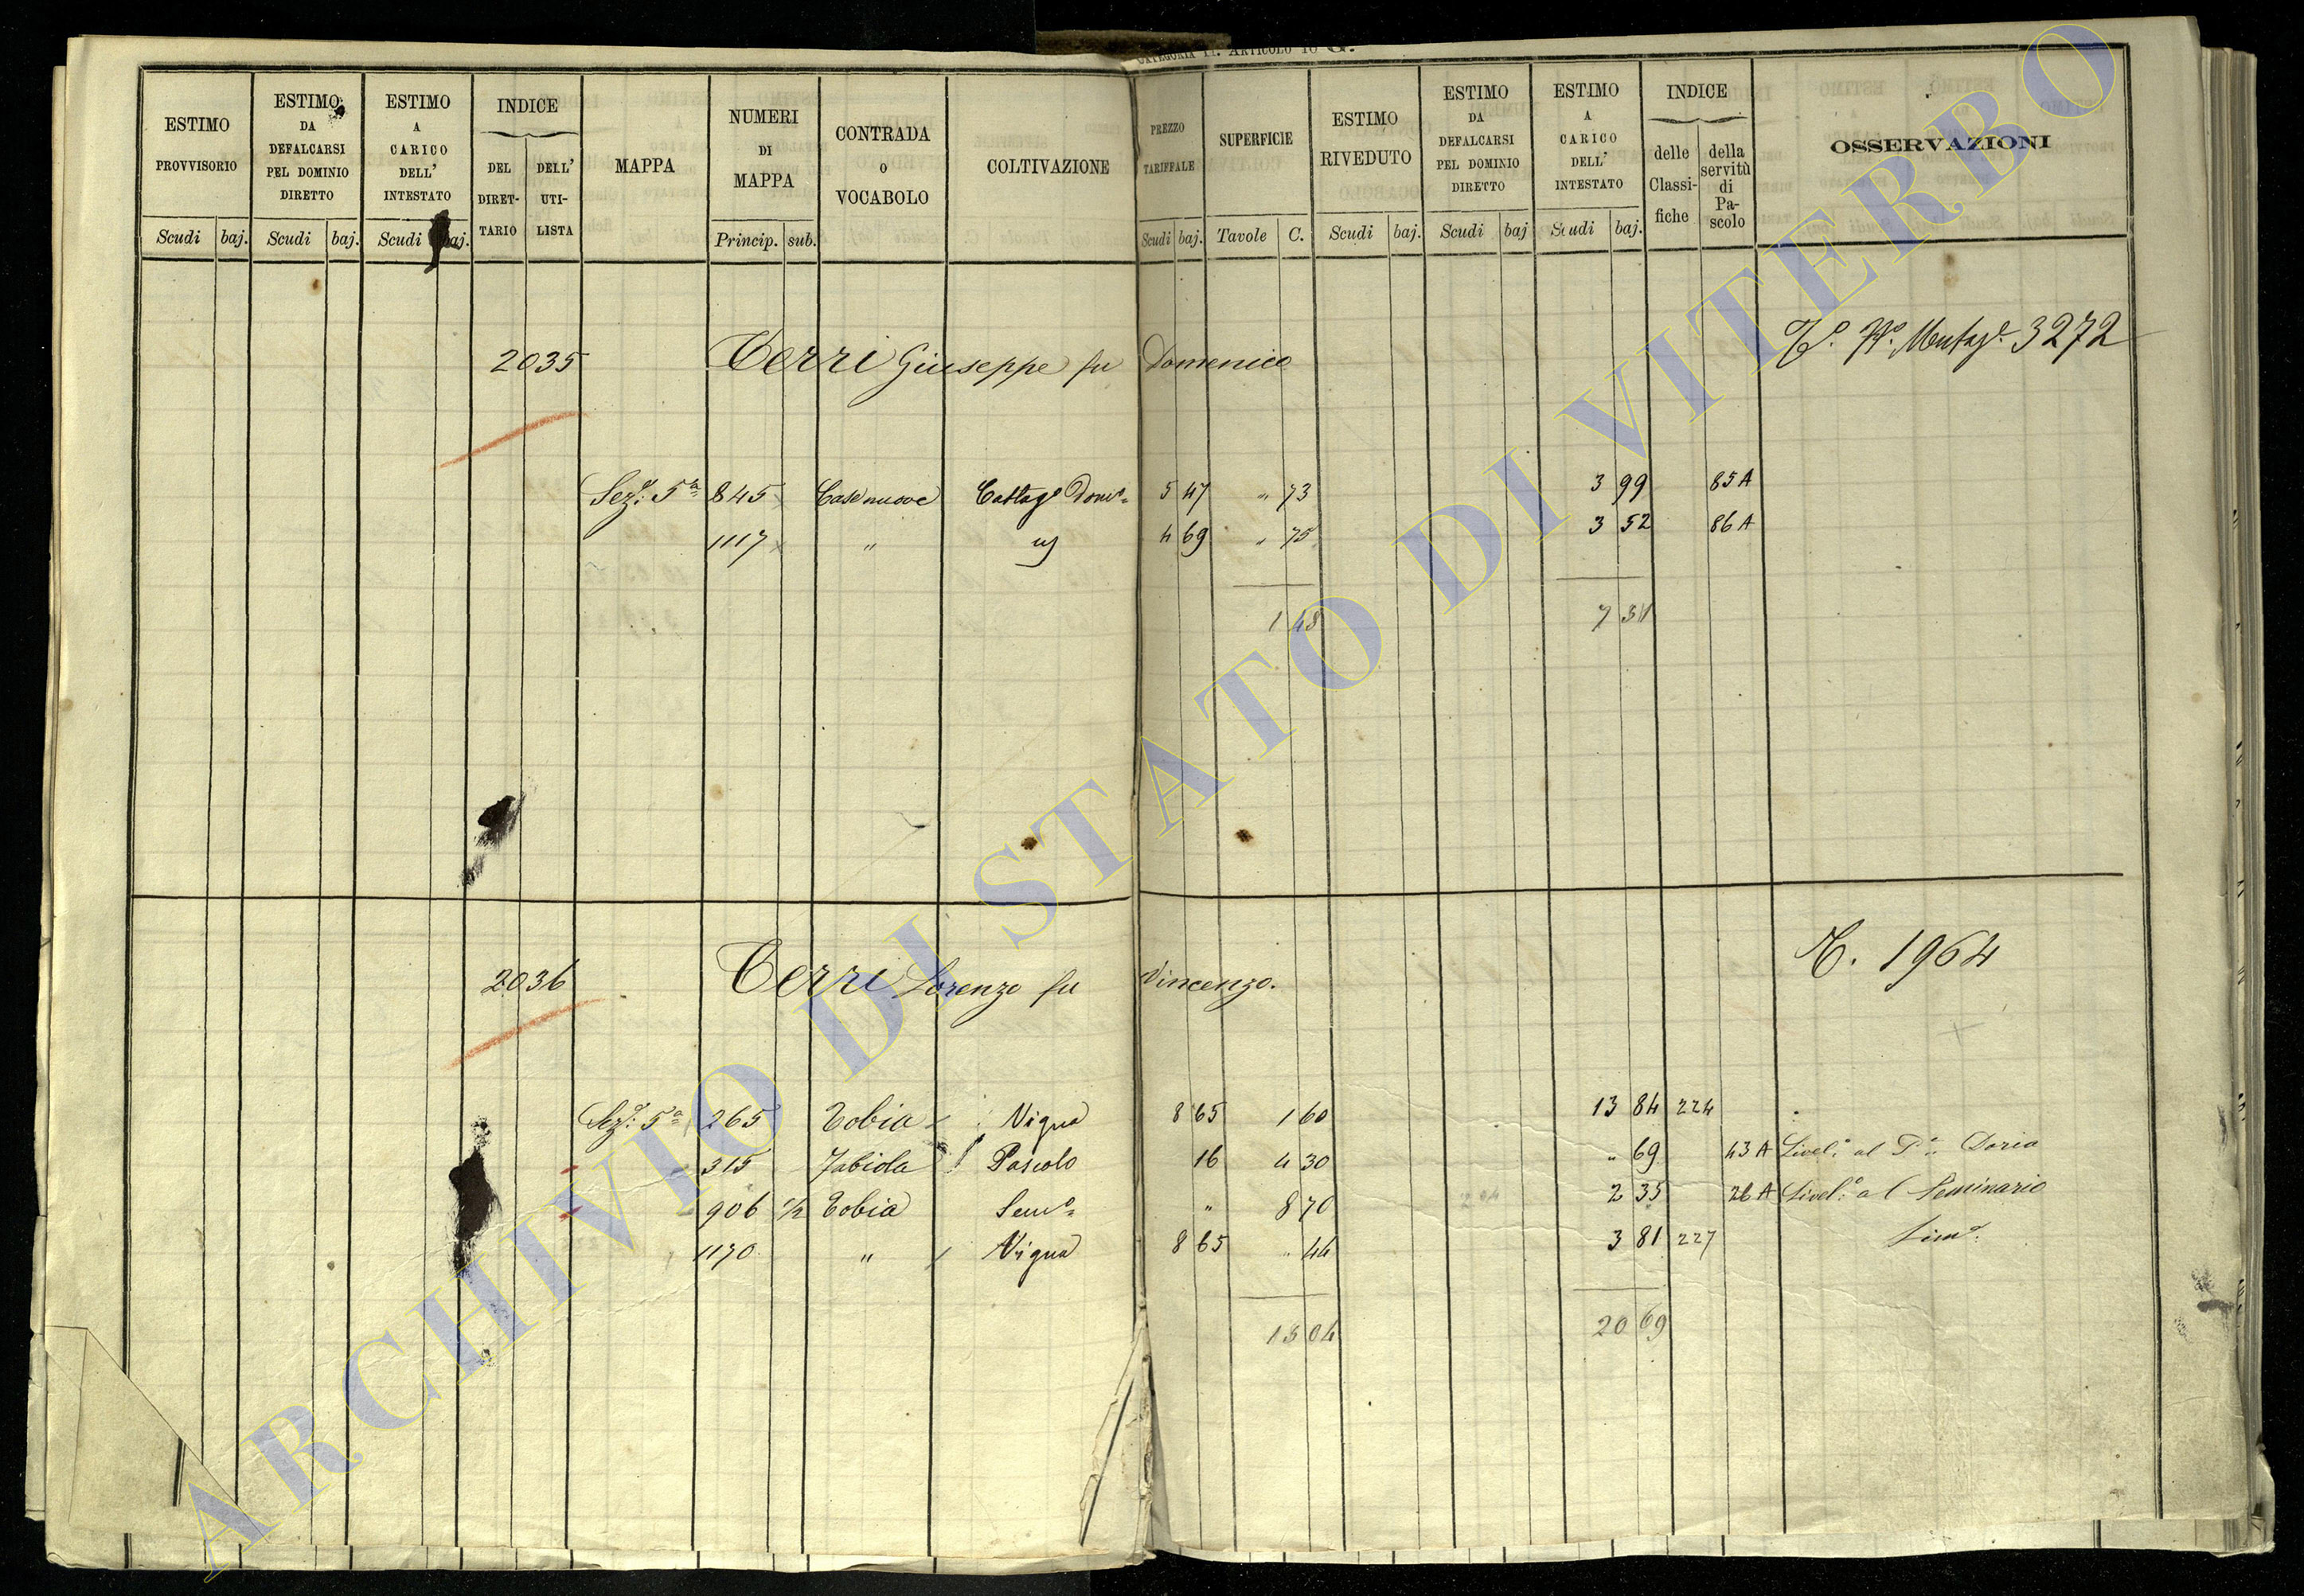 CATEGORIA 1ª. ARTICOLO 10 G.
ESTIMO PROVVISORIO
ESTIMO DA DEFALCARSI PEL DOMINIO DIRETTO
ESTIMO A CARICO DELL' INTESTATO
INDICE
DEL DIRET-TARIO
DELL' UTI-LISTA
MAPPA
NUMERI DI MAPPA
CONTRADA O VOCABOLO
COLTIVAZIONE
PREZZO TARIFFALE
SUPERFICIE
ESTIMO RIVEDUTO
ESTIMO DA DEFALCARSI PEL DOMINIO DIRETTO
ESTIMO A CARICO DELL' INTESTATO
INDICE
delle Classi-fiche
della servitù di Pa-scolo
OSSERVAZIONI
Scudi baj. Scudi baj. Scudi baj. Princip. sub. Scudi baj. Tavole C. Scudi baj. Scudi baj Scudi baj.
2035 Cerri Giuseppe fu Domenico 3272
Sez. 5ª 845 Case nuove Castag. Dom. 5 47 " 73 3 99 85 A
1117 " 4 69 " 75 3 52 86 A
1 48 7 51
2036 Cerri Lorenzo fu Vincenzo. 1964
Sez. 5ª 265 Tobia Vigna 8 65 1 60 13 84 224
315 Fabiola Pascolo 16 4 30 " 69 43 A Livel. al P. Doria
906 1/2 Tobia Sem. " 8 70 2 35 26 A Livel. al Seminario
1170 " Vigna 8 65 " 44 3 81 227 Sim.
15 04 20 69
ARCHIVIO DI STATO DI VITERBO